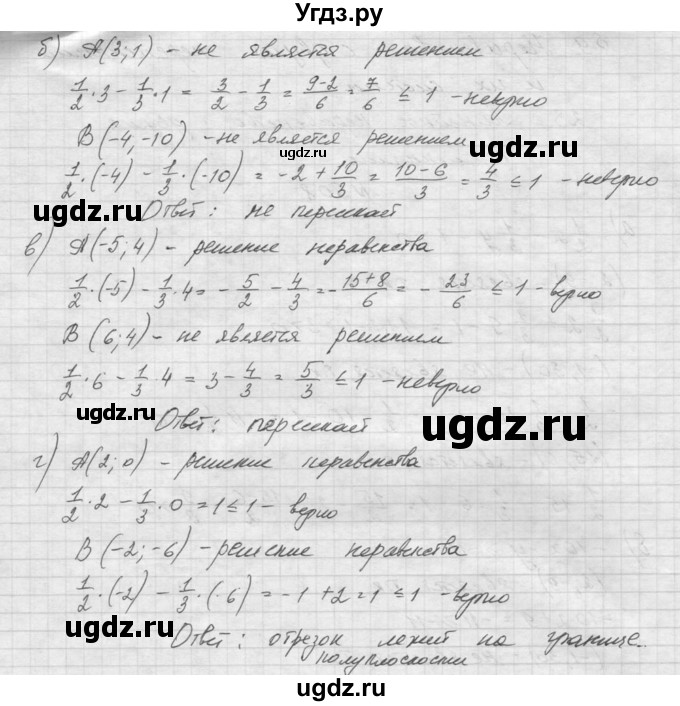 Угдз.ру
б) A(3;1) - не является решением
1/2 · 3 - 1/3 · 1 = 3/2 - 1/3 = 9-2/6 = 7/6 ≤ 1 - неверно
B(-4,-10) - не является решением
1/2 · (-4) - 1/3 · (-10) = -2 + 10/3 = 10-6/3 = 4/3 ≤ 1 - неверно
Ответ: не пересекает
в) A(-5;4) - решение неравенства
1/2 · (-5) - 1/3 · 4 = - 5/2 - 4/3 = - 15+8/6 = - 23/6 ≤ 1 - верно
B(6;4) - не является решением
1/2 · 6 - 1/3 · 4 = 3 - 4/3 = 5/3 ≤ 1 - неверно
Ответ: пересекает
г) A(2;0) - решение неравенства
1/2 · 2 - 1/3 · 0 = 1 ≤ 1 - верно
B(-2;-6) - решение неравенства
1/2 · (-2) - 1/3 · (-6) = -1 + 2 = 1 ≤ 1 - верно
Ответ: отрезок лежит на границе
полуплоскости
uдgz.ru